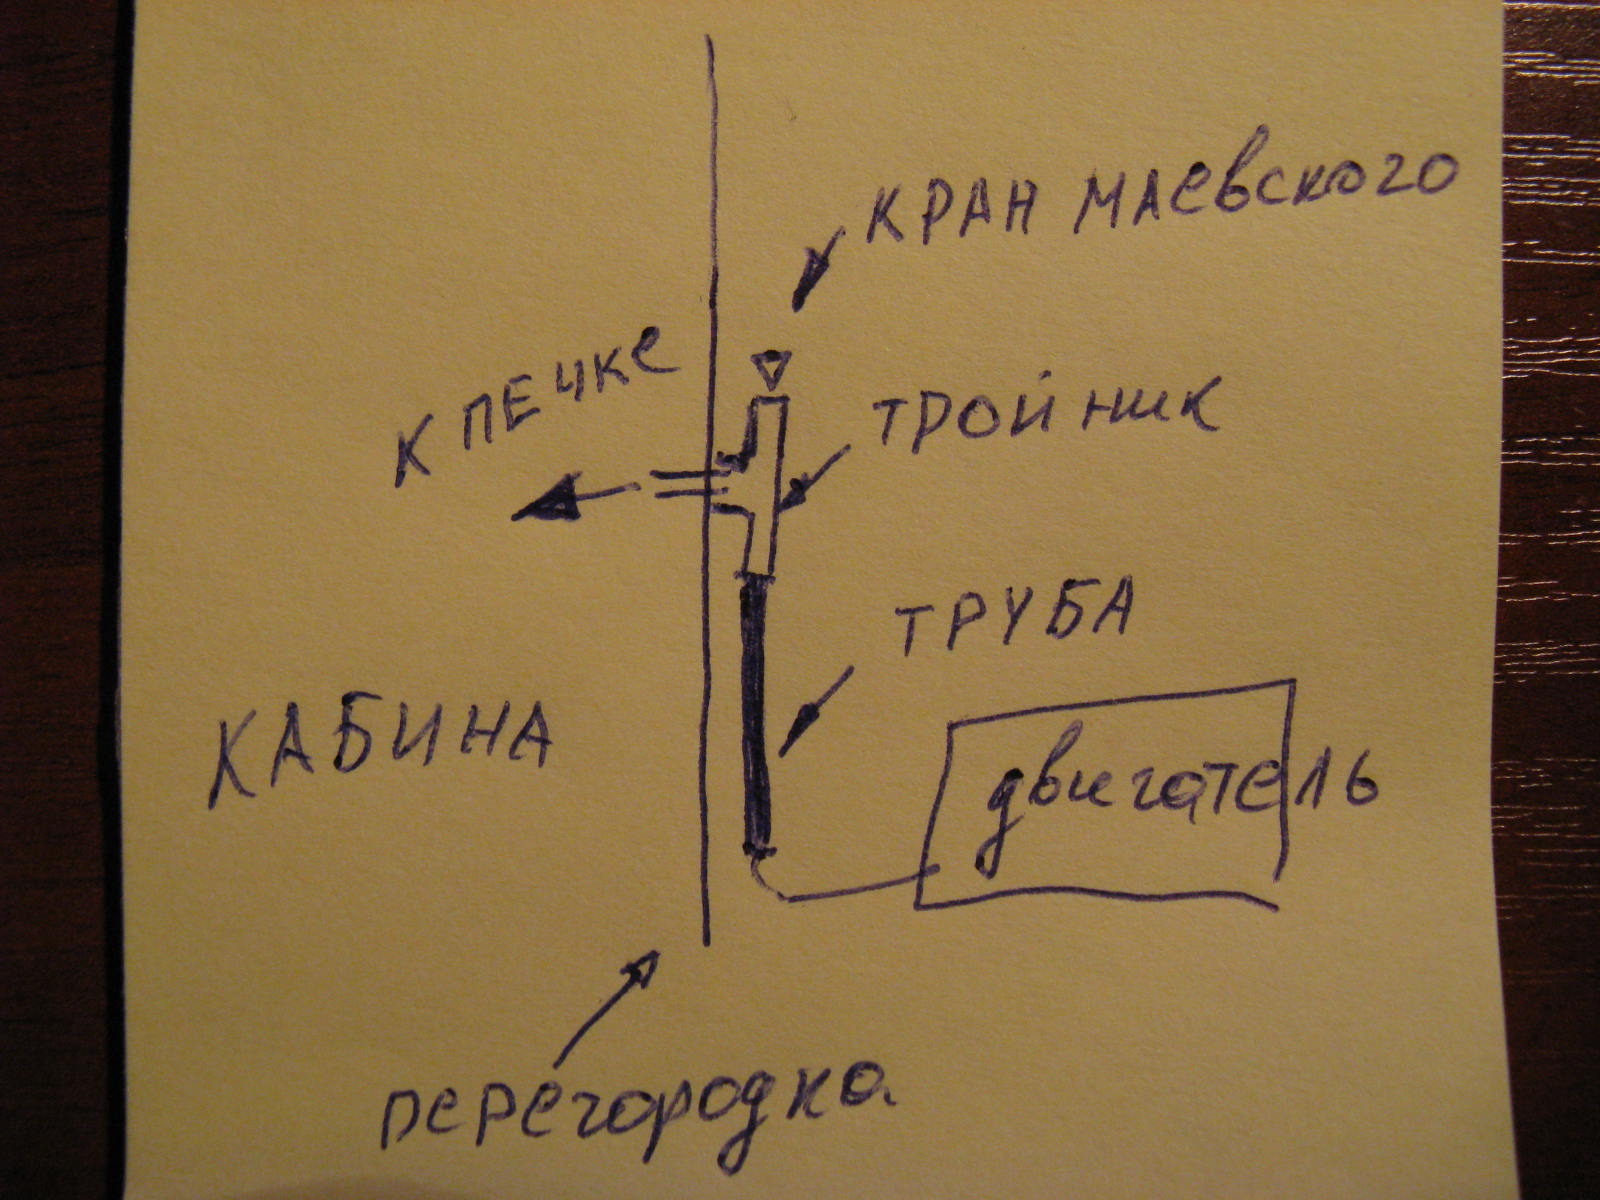 КРАН МАЕВСКОГО
К ПЕЧКЕ
ТРОЙНИК
ТРУБА
КАБИНА
двигатель
перегородка